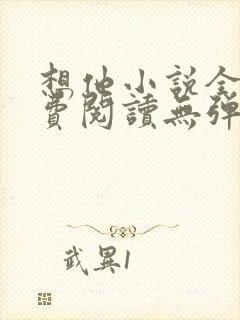 想他小說全
費閱讀無彈
武異1